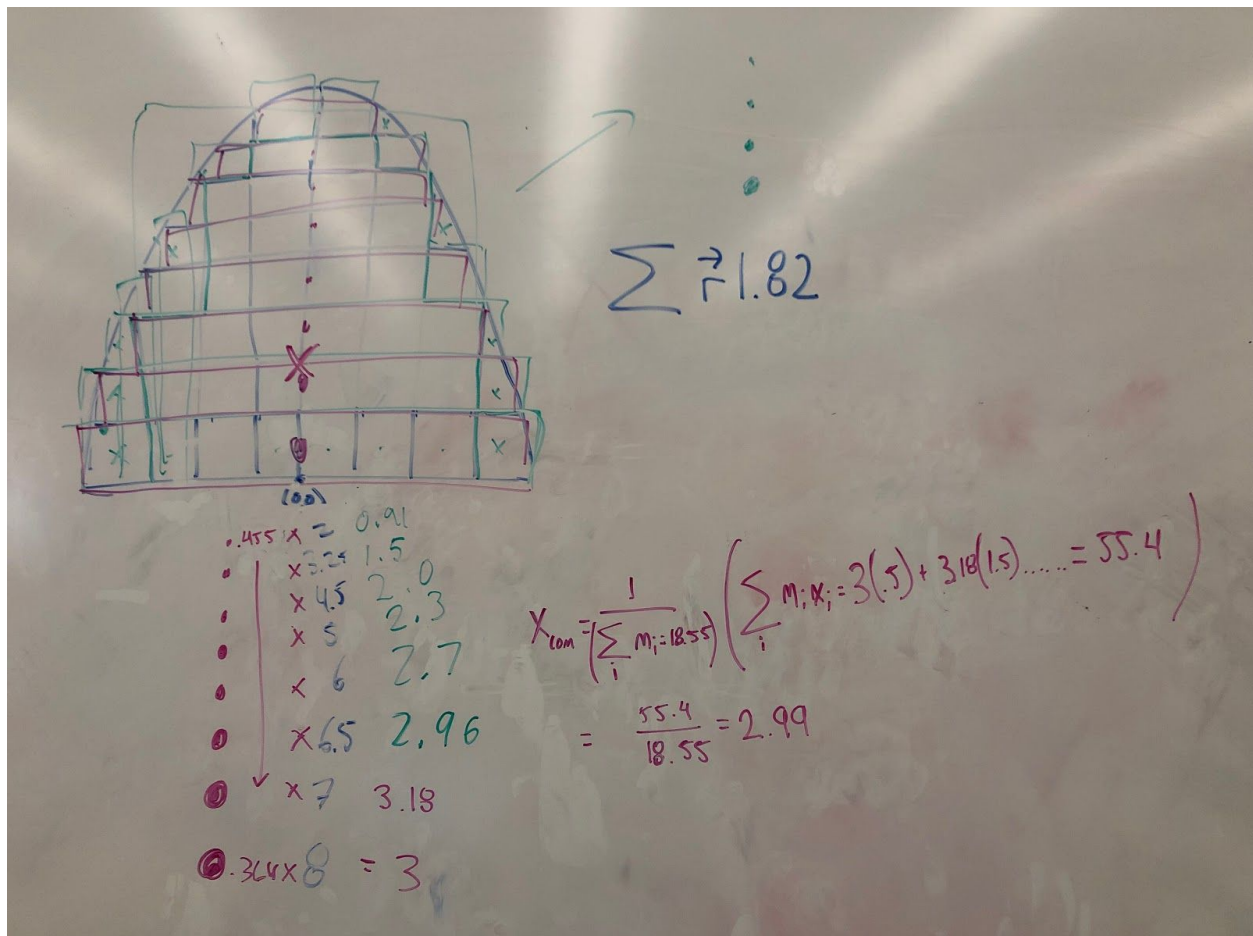 ∑ r⃗ 1.82
(0,0)
.455 x 2 0.91
x 3.25 1.5
x 4.5 2.0
x 5 2.3
x 6 2.7
x 6.5 2.96
x 7 3.18
.364 x 8 = 3
X_com = 1/(∑_i m_i = 18.55) (∑_i m_i x_i = 3(.5) + 3.18(1.5) ...... = 55.4)
= 55.4/18.55 = 2.99